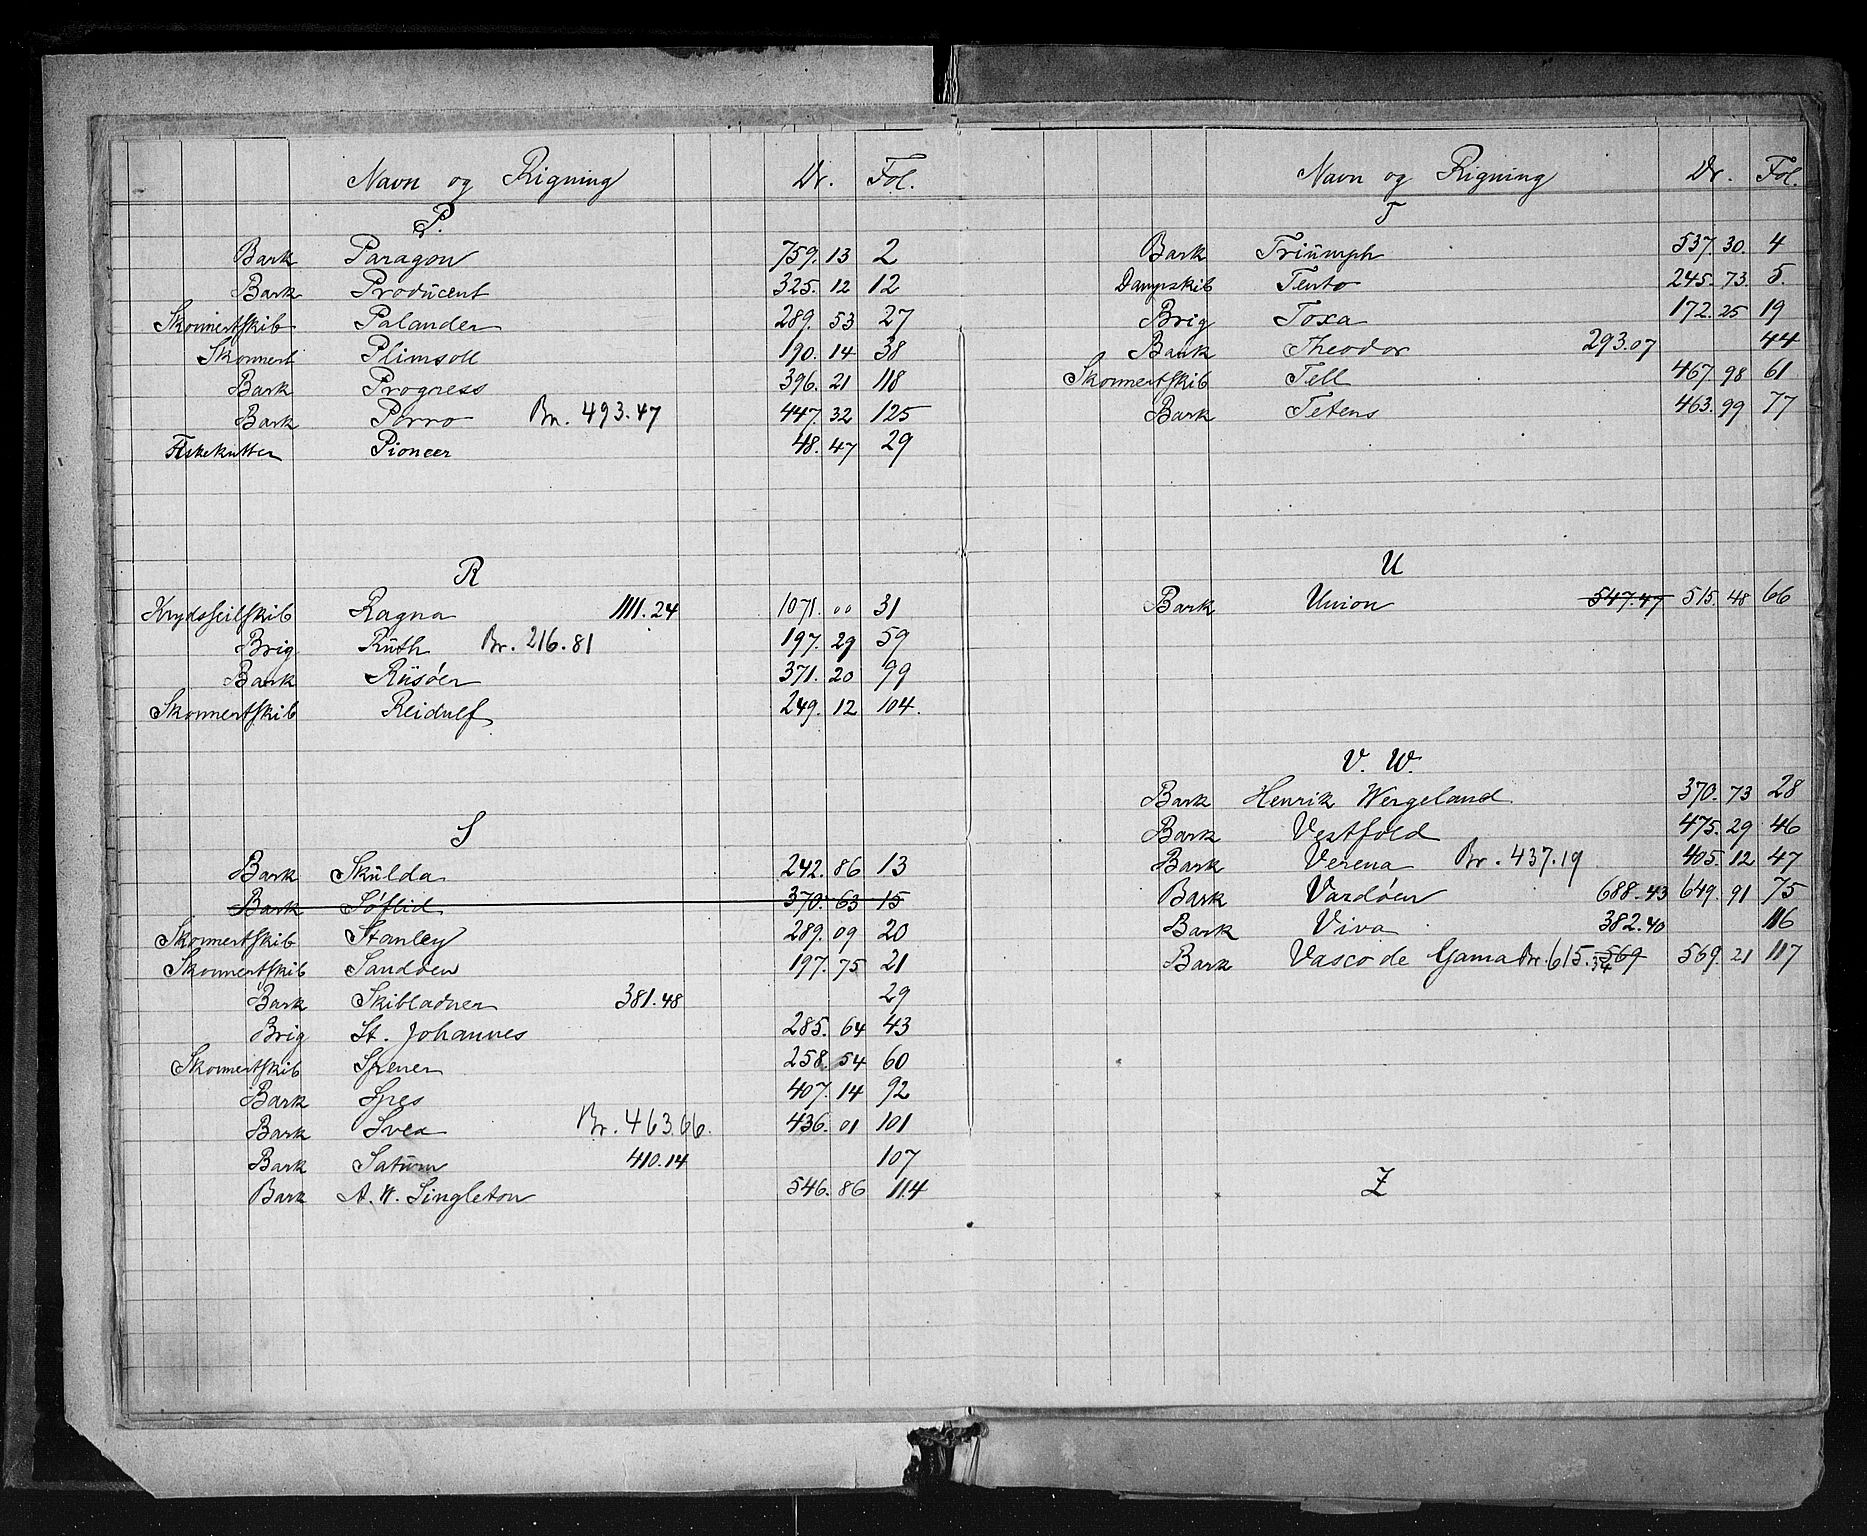 Navn og Rigning Dr. Fol.
P.
Bark Paragon 759. 13 2
Bark Producent 325. 12 12
Skonnertskib Palander 289. 53 27
Skonnert Plimsoll 190. 14 38
Bark Progress 396. 21 118
Bark Porro Br. 493.47 447. 32 125
Fiskekutter Pioneer 48. 47 29
R
Krydsseilskib Ragna 1111.24 1071. 00 31
Brig Ruth Br. 216.81 197. 29 59
Bark Riisøer 371. 20 99
Skonnertskib Reidulf 249. 12 104.
S
Bark Skulda 242. 86 13
Bark Søflid 370. 63 15
Skonnertskib Stanley 289. 09 20
Skonnertskib Sandøen 197. 75 21
Bark Skibladner 381.48 29
Brig St. Johannes 285. 64 43
Skonnertskib Spener 258. 54 60
Bark Spes 407. 14 92
Bark Svea Br. 463.66. 436. 01 101
Bark Saturn 410.14 107
Bark A. W. Singleton 546. 86 114
Navn og Rigning Dr. Fol.
T
Bark Triumph 537. 30. 4
Dampskib Tento 245. 73. 5.
Brig Toxa 172. 25 19
Bark Theodor 293.07 44
Skonnertskib Tell 467. 98 61
Bark Tetens 463. 99 77
U
Bark Union 547.47 515. 48 66
V. W.
Bark Henrik Wergeland 370. 73 28
Bark Vestfold 475. 29 46
Bark Verena Br. 437.19 405. 12 47
Bark Vardøen 688.43 649. 91 75
Bark Viva 382.40 116
Bark Vasco de Gama Br. 615.34 569 569. 21 117
Z